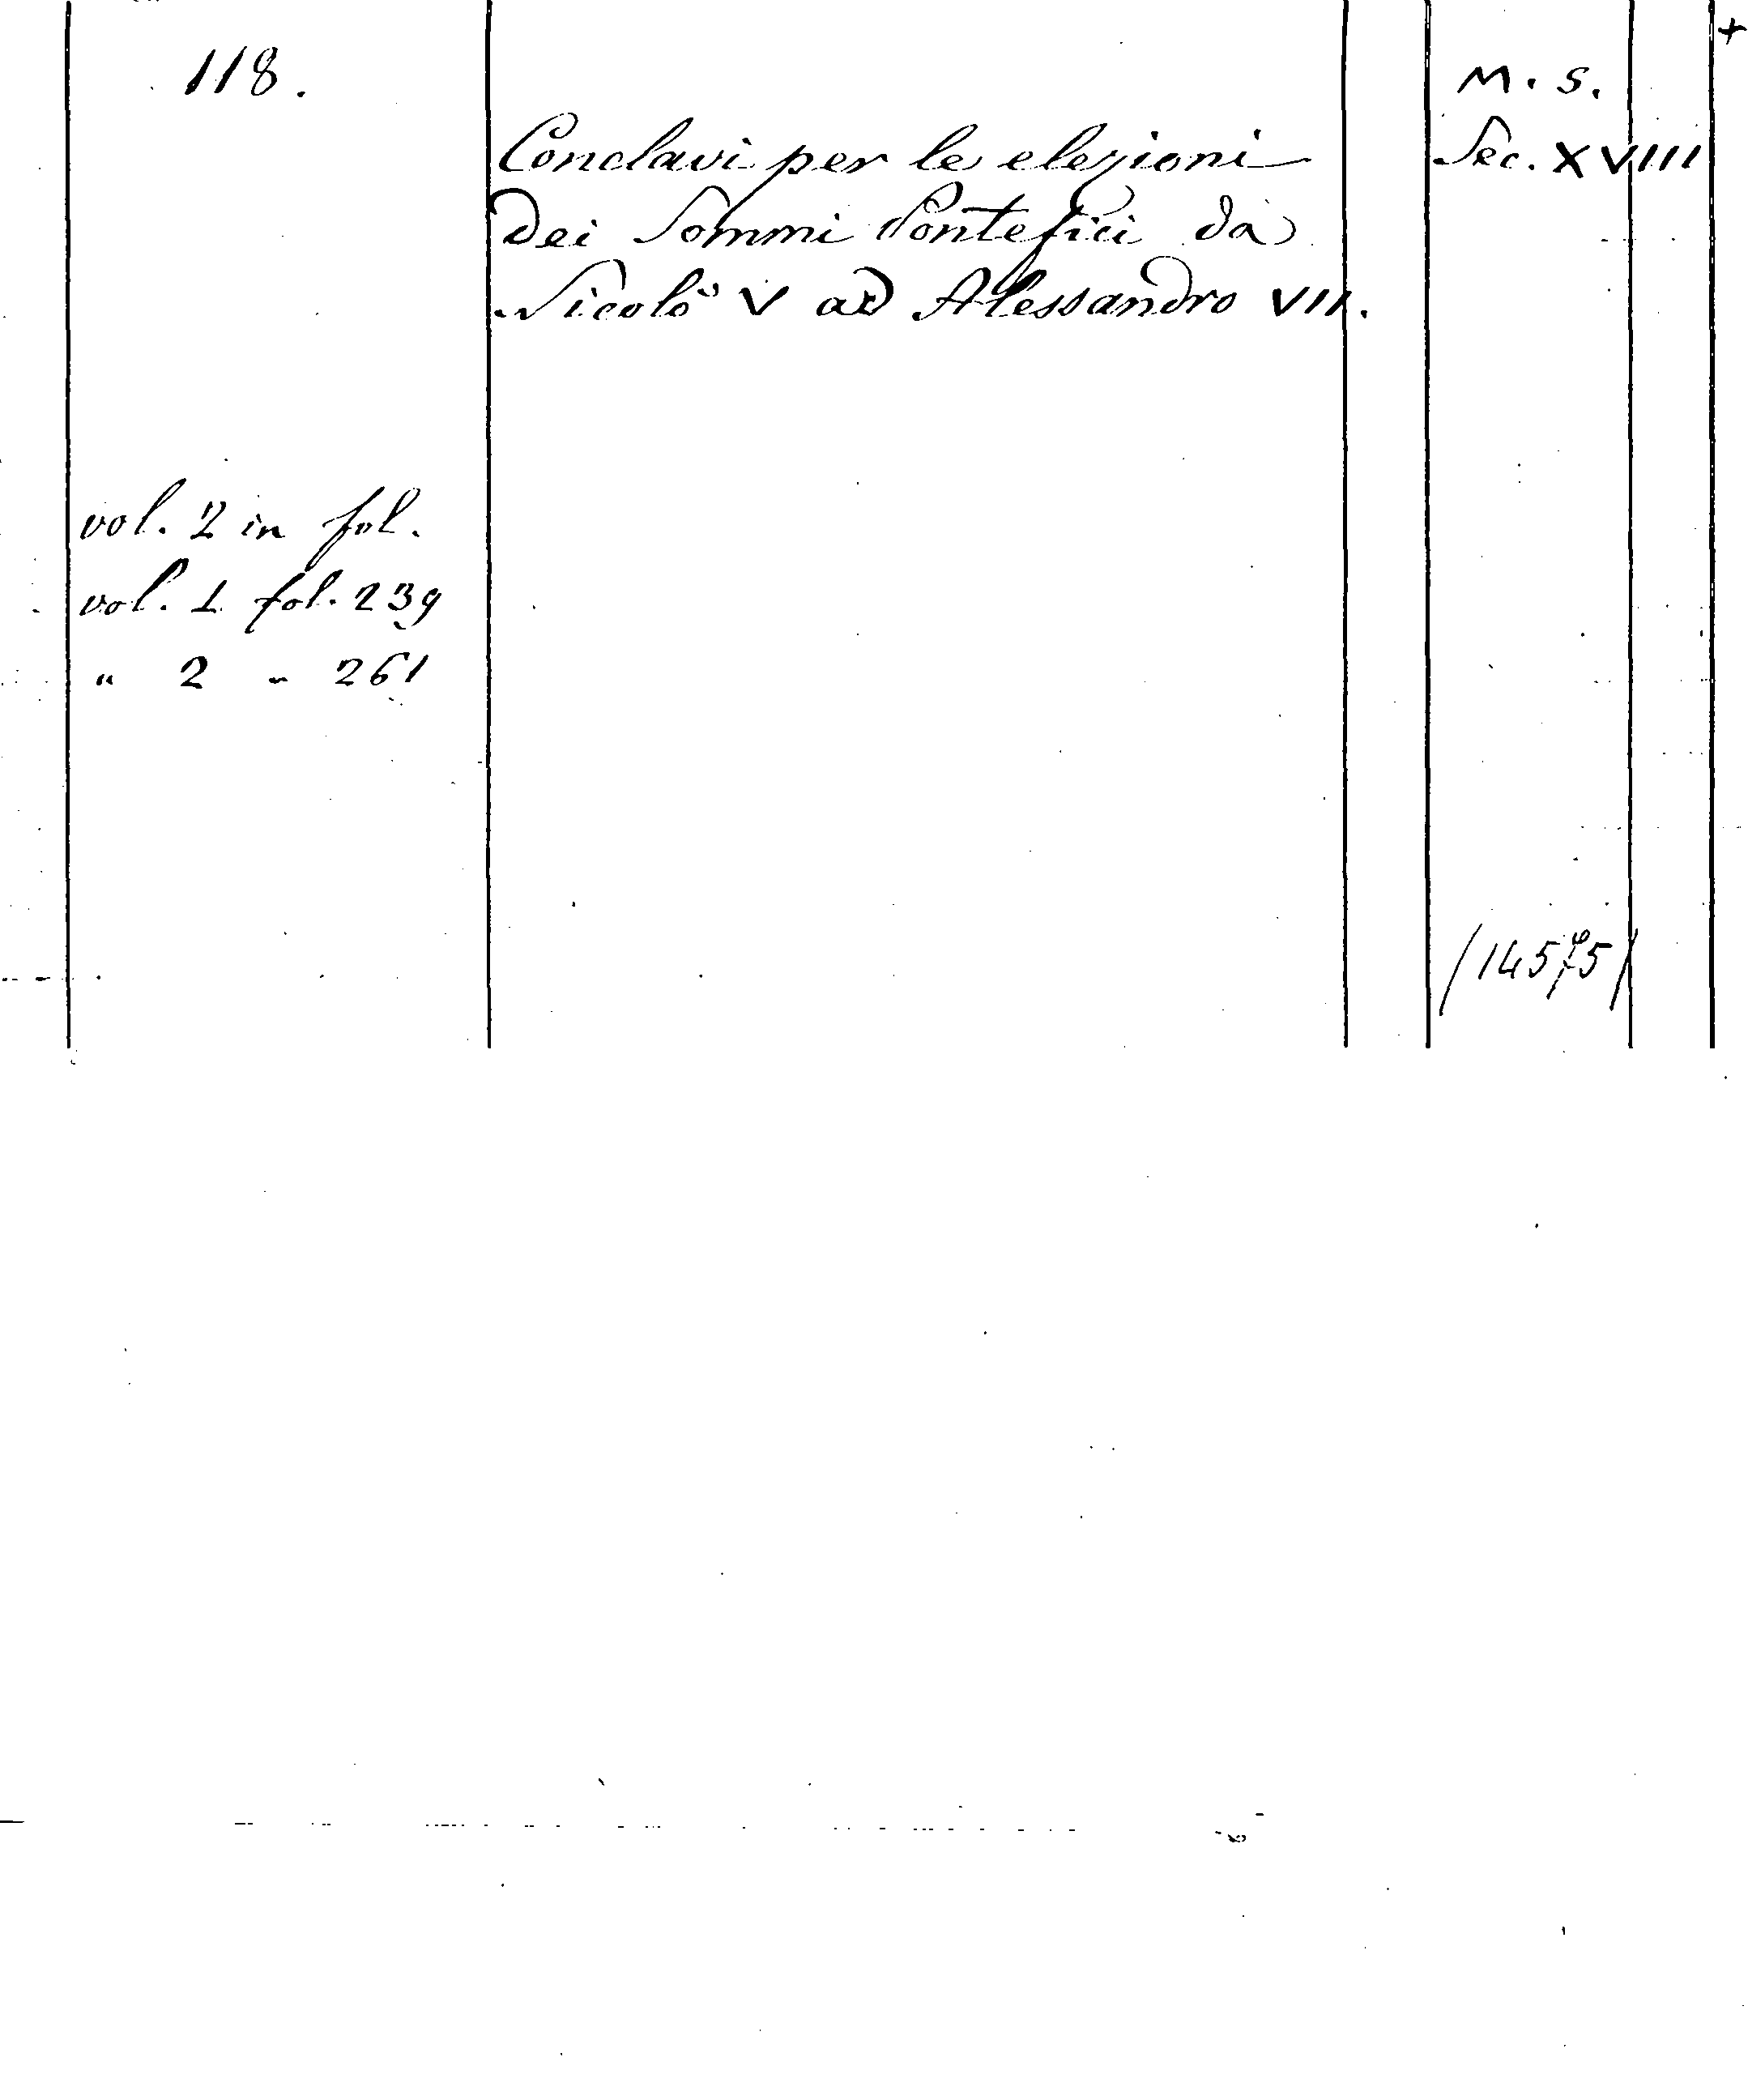 118.
M. S.
Conclavi per le elezioni
Sec. XVIII
dei Sommi Pontefici da
Nicolò V ad Alessandro VII.
vol. 2 in fol.
vol. 1 fol. 239
" 2 " 261